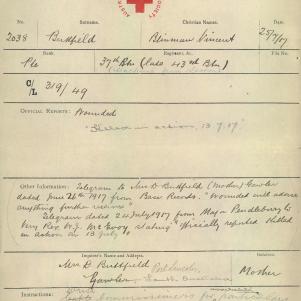 No. Surname. Christian Names. Date.
2038 Buttfield Blinman Vincent 25/7/17
Rank. Regiment, &c.
Pte 37th Bn (late 43rd Bn)
C/L 319/49
OFFICIAL REPORTS: Wounded
"Killed in action, 13.7.17"
Other Information: Telegram to Mrs D Buttfield (Mother) Gawler
dated June 26th 1917 from Base Records. "Wounded will advise
anything further received"
Telegram dated 24 July 1917 from Major Pendlebury to
Very Rev. W.J. McEvoy stating "officially reported killed
in action on 13 July"
Inquirer's Name and Address.
Mrs D Buttfield Port Lincoln
Gawler South Australia Mother
Instructions:
for particulars